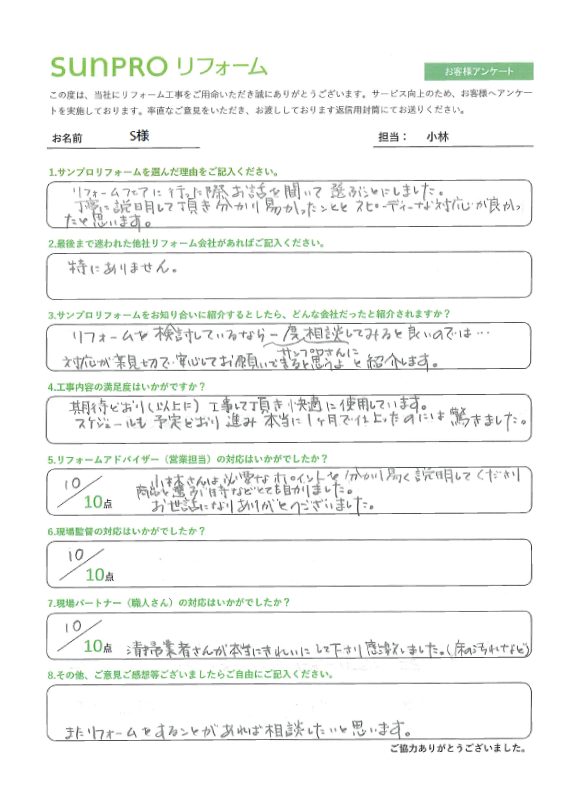 sunpro リフォーム
お客様アンケート
この度は、当社にリフォーム工事をご用命いただき誠にありがとうございます。サービス向上のため、お客様へアンケー
トを実施しております。率直なご意見をいただき、お渡ししております返信用封筒にてお送りください。
お名前 S様 担当： 小林
1.サンプロリフォームを選んだ理由をご記入ください。
リフォームフェアに行った際お話を聞いて選ぶことにしました。
丁寧に説明して頂き分かり易かったこととスピーディーな対応が良かっ
たと思います。
2.最後まで迷われた他社リフォーム会社があればご記入ください。
特にありません。
3.サンプロリフォームをお知り合いに紹介するとしたら、どんな会社だったと紹介されますか？
リフォームを検討しているなら一度相談してみると良いのでは…
サンプロさんに
対応が親切で安心してお願いできると思うよと紹介します。
4.工事内容の満足度はいかがですか？
期待どおり(以上に)工事して頂き快適に使用しています。
スケジュールも予定どおり進み本当に1ヶ月で仕上ったのには驚きました。
5.リフォームアドバイザー（営業担当）の対応はいかがでしたか？
10/10点
小林さんは必要なポイントを分かり易く説明してくださり
商品を選ぶ時などとても助かりました。
お世話になりありがとうございました。
6.現場監督の対応はいかがでしたか？
10/10点
7.現場パートナー（職人さん）の対応はいかがでしたか？
10/10点
清掃業者さんが本当にきれいにして下さり感激しました。(床の汚れなど)
8.その他、ご意見ご感想等ございましたらご自由にご記入ください。
またリフォームをすることがあれば相談したいと思います。
ご協力ありがとうございました。